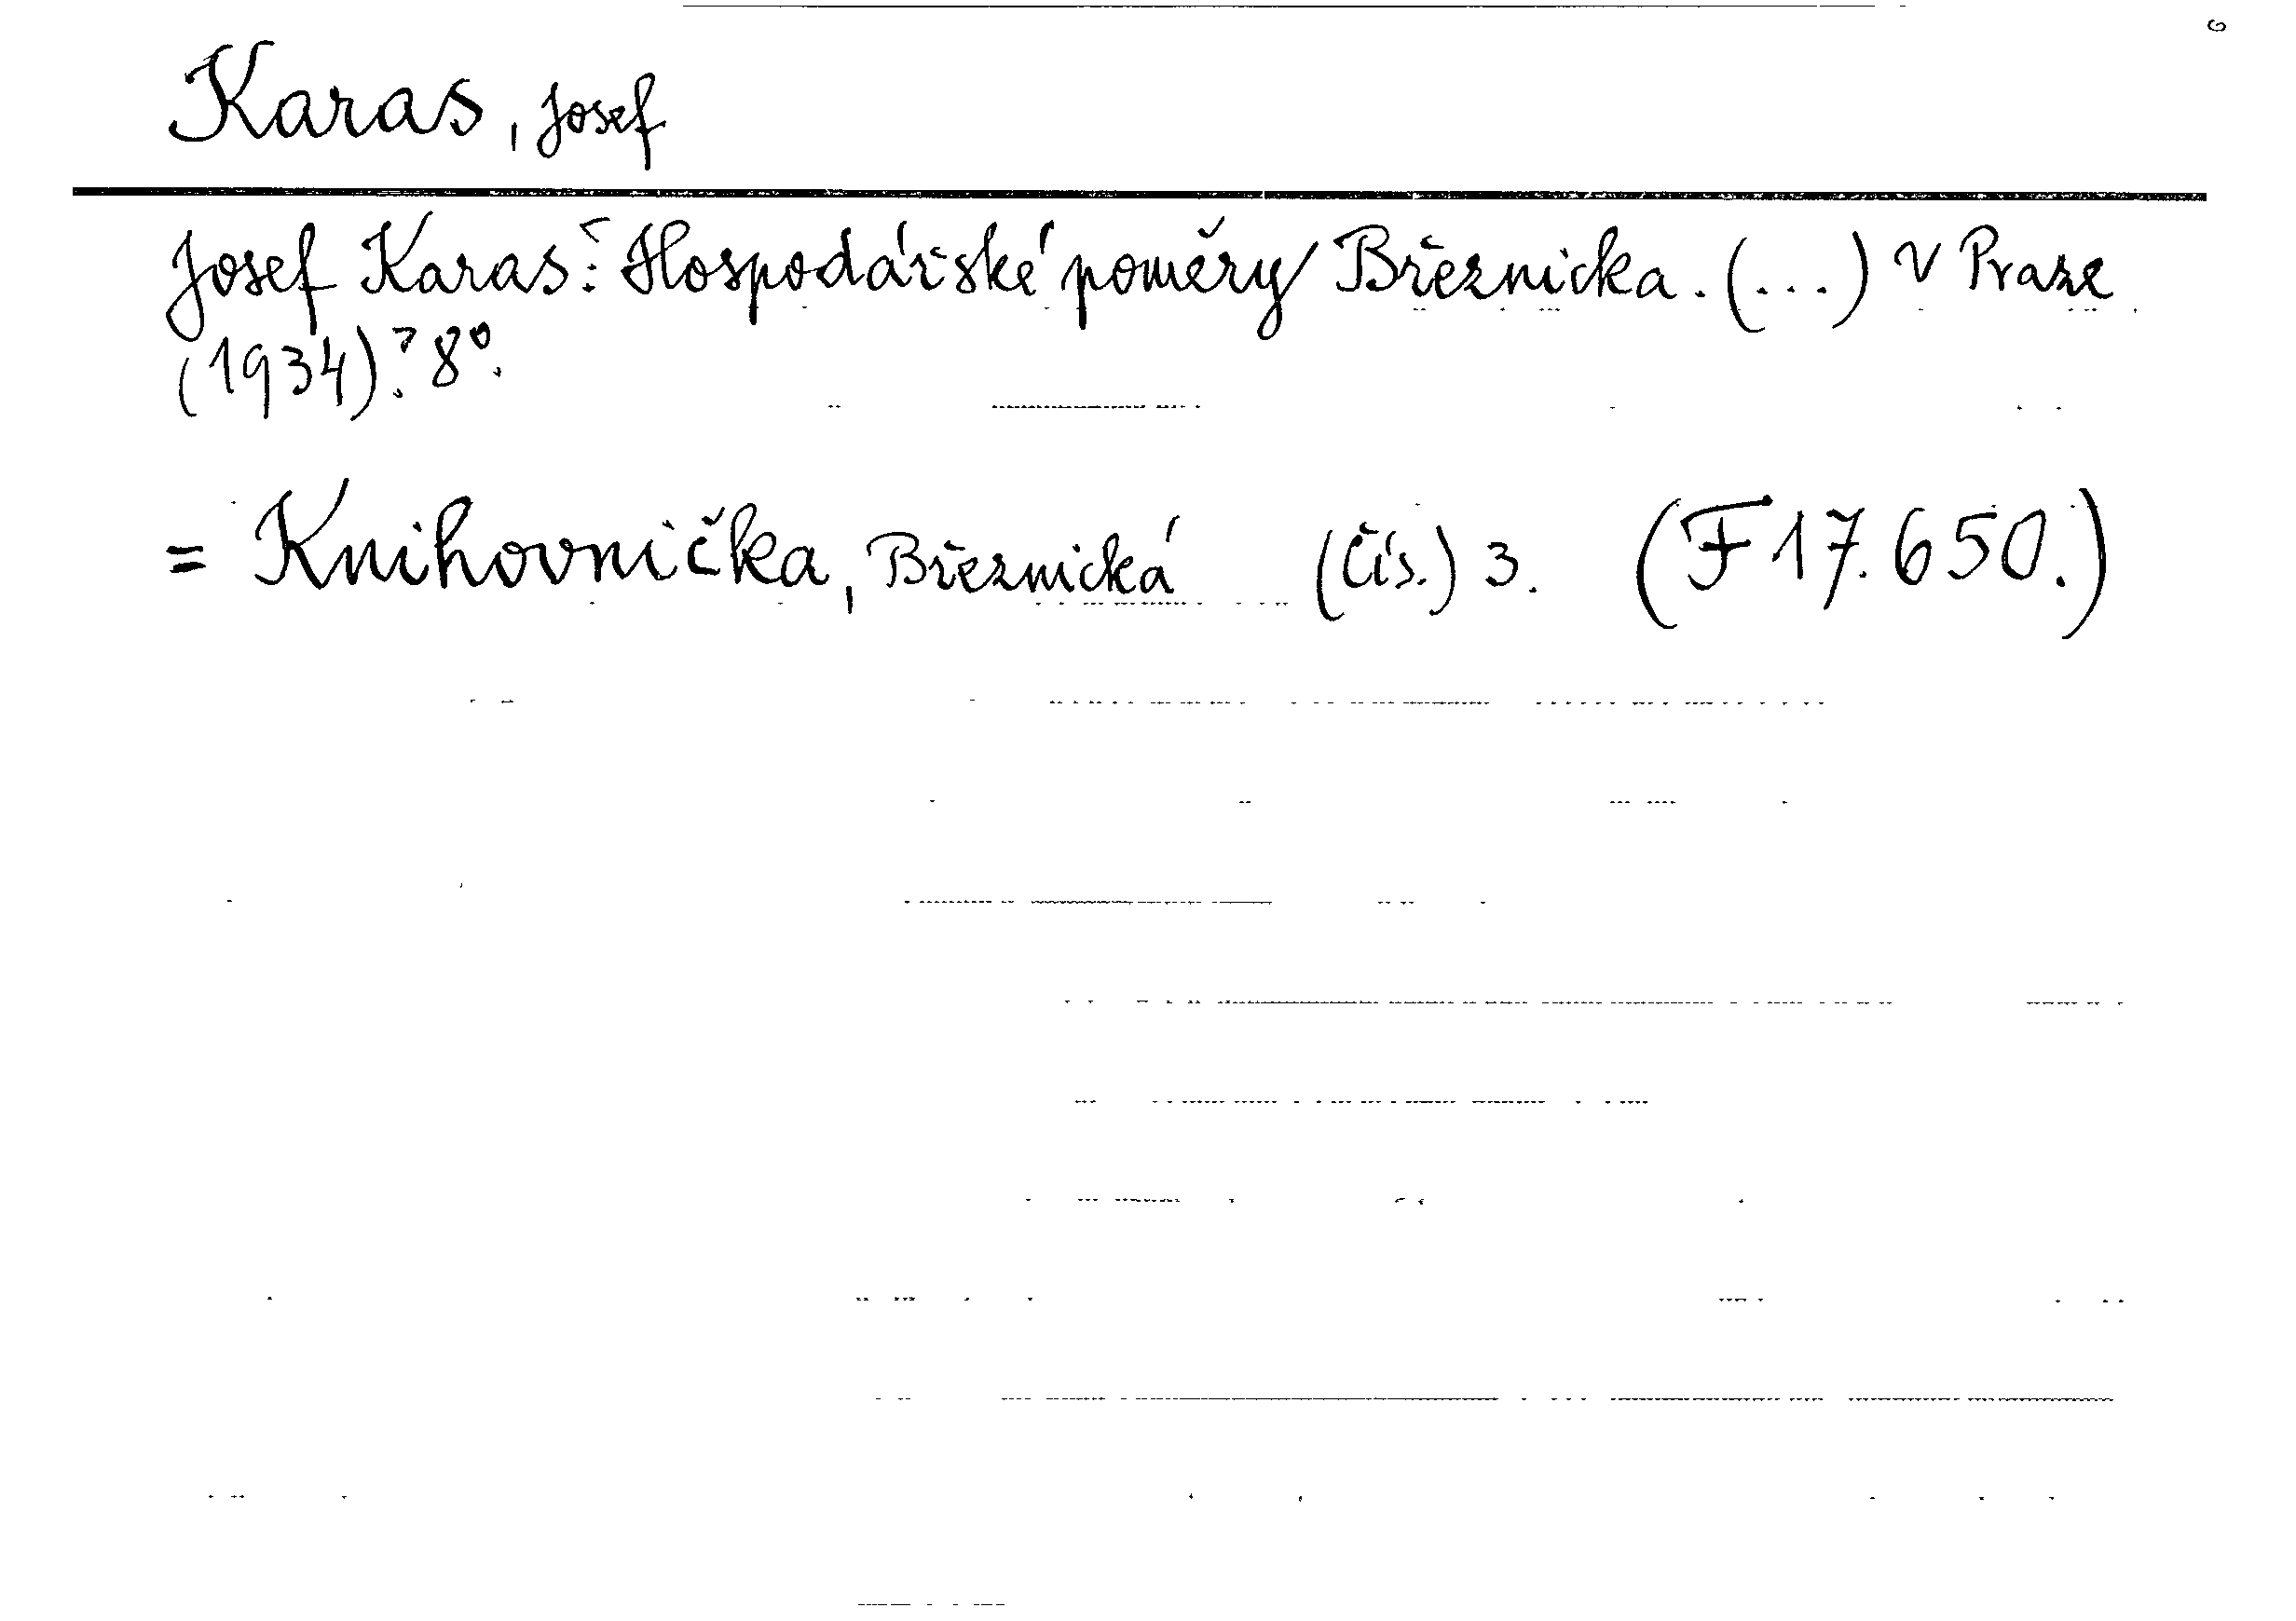 Karas, Josef
Josef Karas: Hospodářské poměry Březnicka. (...) V Praze
(1934). 8°.
= Knihovnička, Březnická (čís.) 3. (F 17.650.)